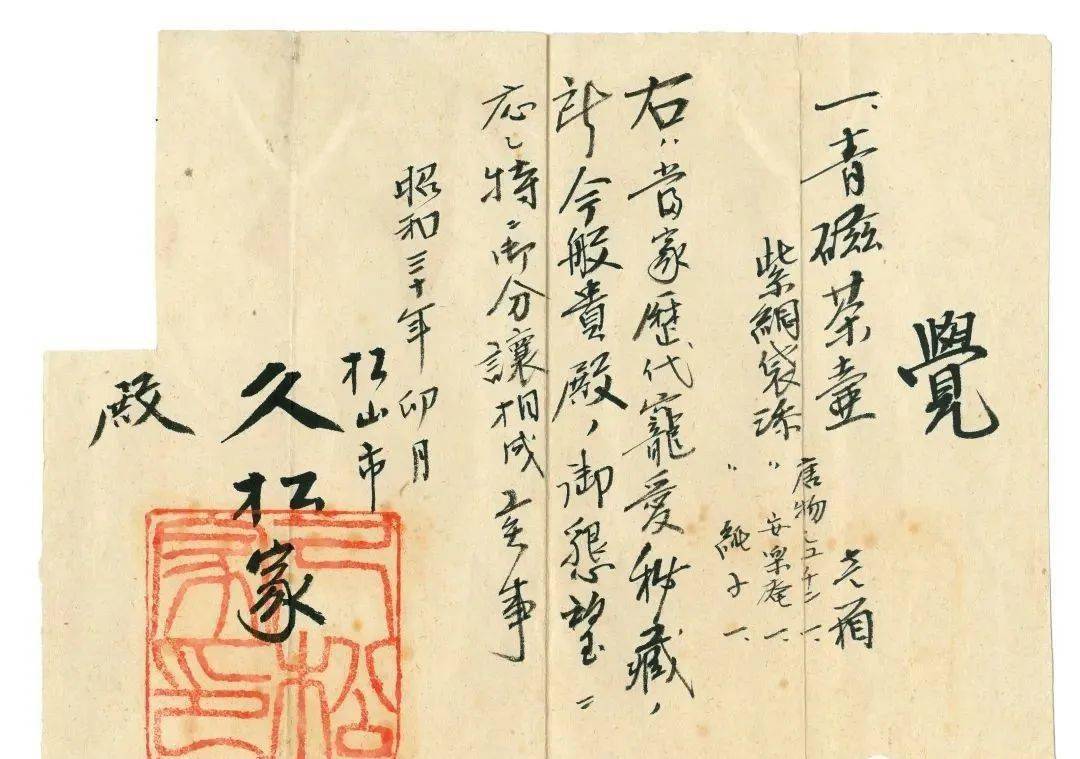 覺
一、青磁茶壷 壱箱
紫絹袋添 唐物 一、
〃 安楽庵 一、
純子 一、
右ハ當家歴代寵愛秘藏ノ
計今般貴殿ノ御懇望ニ
応じ特ニ御分讓相成候事
昭和三十年卯月
松山市
久松家
殿
久松家印